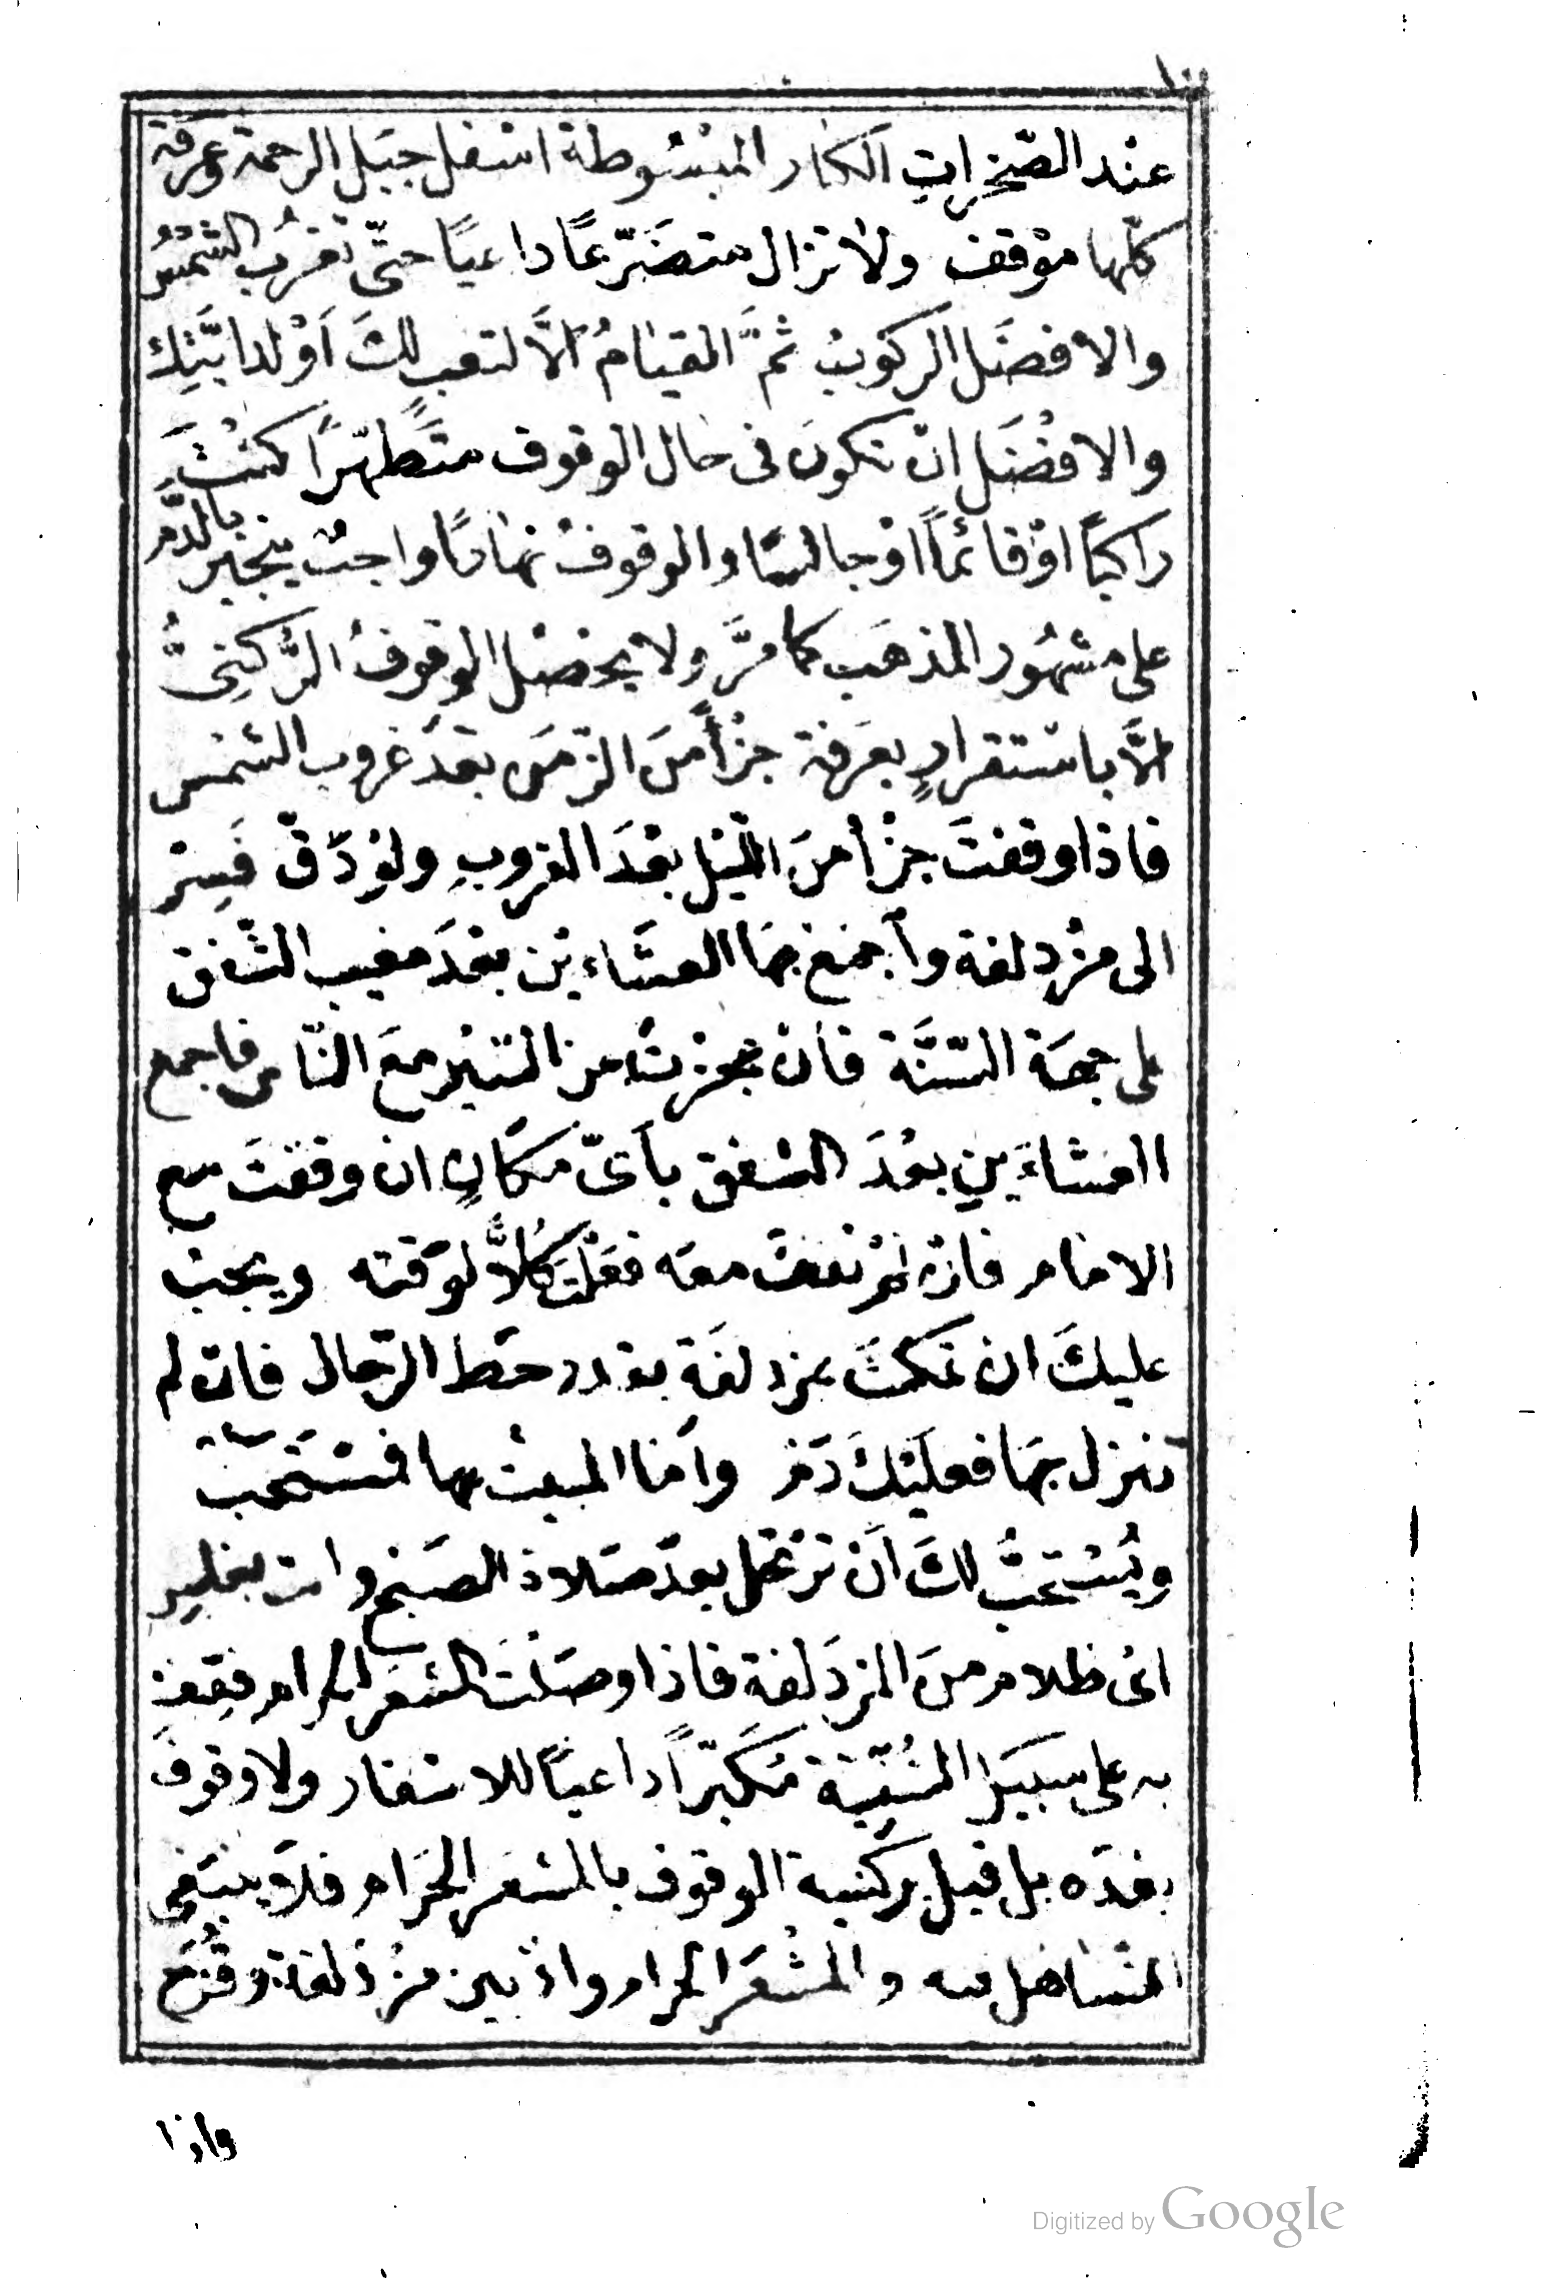 عنْد الصّخراتِ الكبار المبْسُوطة اسْفل جبَل الرحمة وعَرفة
كلّها موْقف ولا تزال متضَرّعًا داعيًا حتّى تغرُب الشمْسُ
والافضَل الركوبُ ثمَّ القيَامُ الَّا لتعب لكَ اَوْ لدابَّتِك
والافضَل انْ تكونَ فى حال الوقوف متَطهّرًا كنْتَ
راكبًا اوْ قائمًا اوْ جالسًا والوقوفُ نهارًا واجبٌ ينجبر بالدّم
على مشهُور المذهَب كما مرَّ ولا يحْصُل الوقوفُ الرُّكنِىُّ
الَّا باسْتقرارٍ بعَرفة جزْأً منَ الزّمَن بعْدَ غروب الشمْس
فاذا وقفتَ جزْأ منَ اللّيْل بعْدَ الغروبِ ولوْ دَقّ فَسِرْ
الى مزْدلفة وأجمَعْ بهَا العشَاءيْن بعْدَ مغيب الشّفق
على جهَة السّنَّة فانْ عجزْتَ عن السّيْر معَ النّاس فاجمع
العشاءَين بعْدَ الشفق بأىّ مكَانٍ ان وقفتَ مع
الامام فانْ لمْ تقفْ معَه فعَلْتَ كُلاًّ لوَقته ويجبُ
عليكَ ان تمكثَ بمزدلفَة بقدر حَط الرّحال فان لم
تنزل بهَا فعلَيْكَ دَم وأمّا المبيْتُ بها فمسْتَحبٌّ
ويُسْتحَبُّ لكَ أن ترْتحل بعدَ صَلاة الصّبْح وانت بغلسٍ
اىْ ظلام منَ المزدَلفة فاذا وصَلْتَ المشعَر الحرام فقِفْ
به على سبيَل السُنّيّة مُكَبّرًا داعيًا للاسْفار ولا وقوفَ
بعْدَه بل قيل بركنيّة الوقوف بالمشعَر الحَرام فلاَ ينبَغى
التّسَاهل فيه والمشْعَر الحرام واد بين مزْدلفة وقُزَح
واذا
Digitized by Google